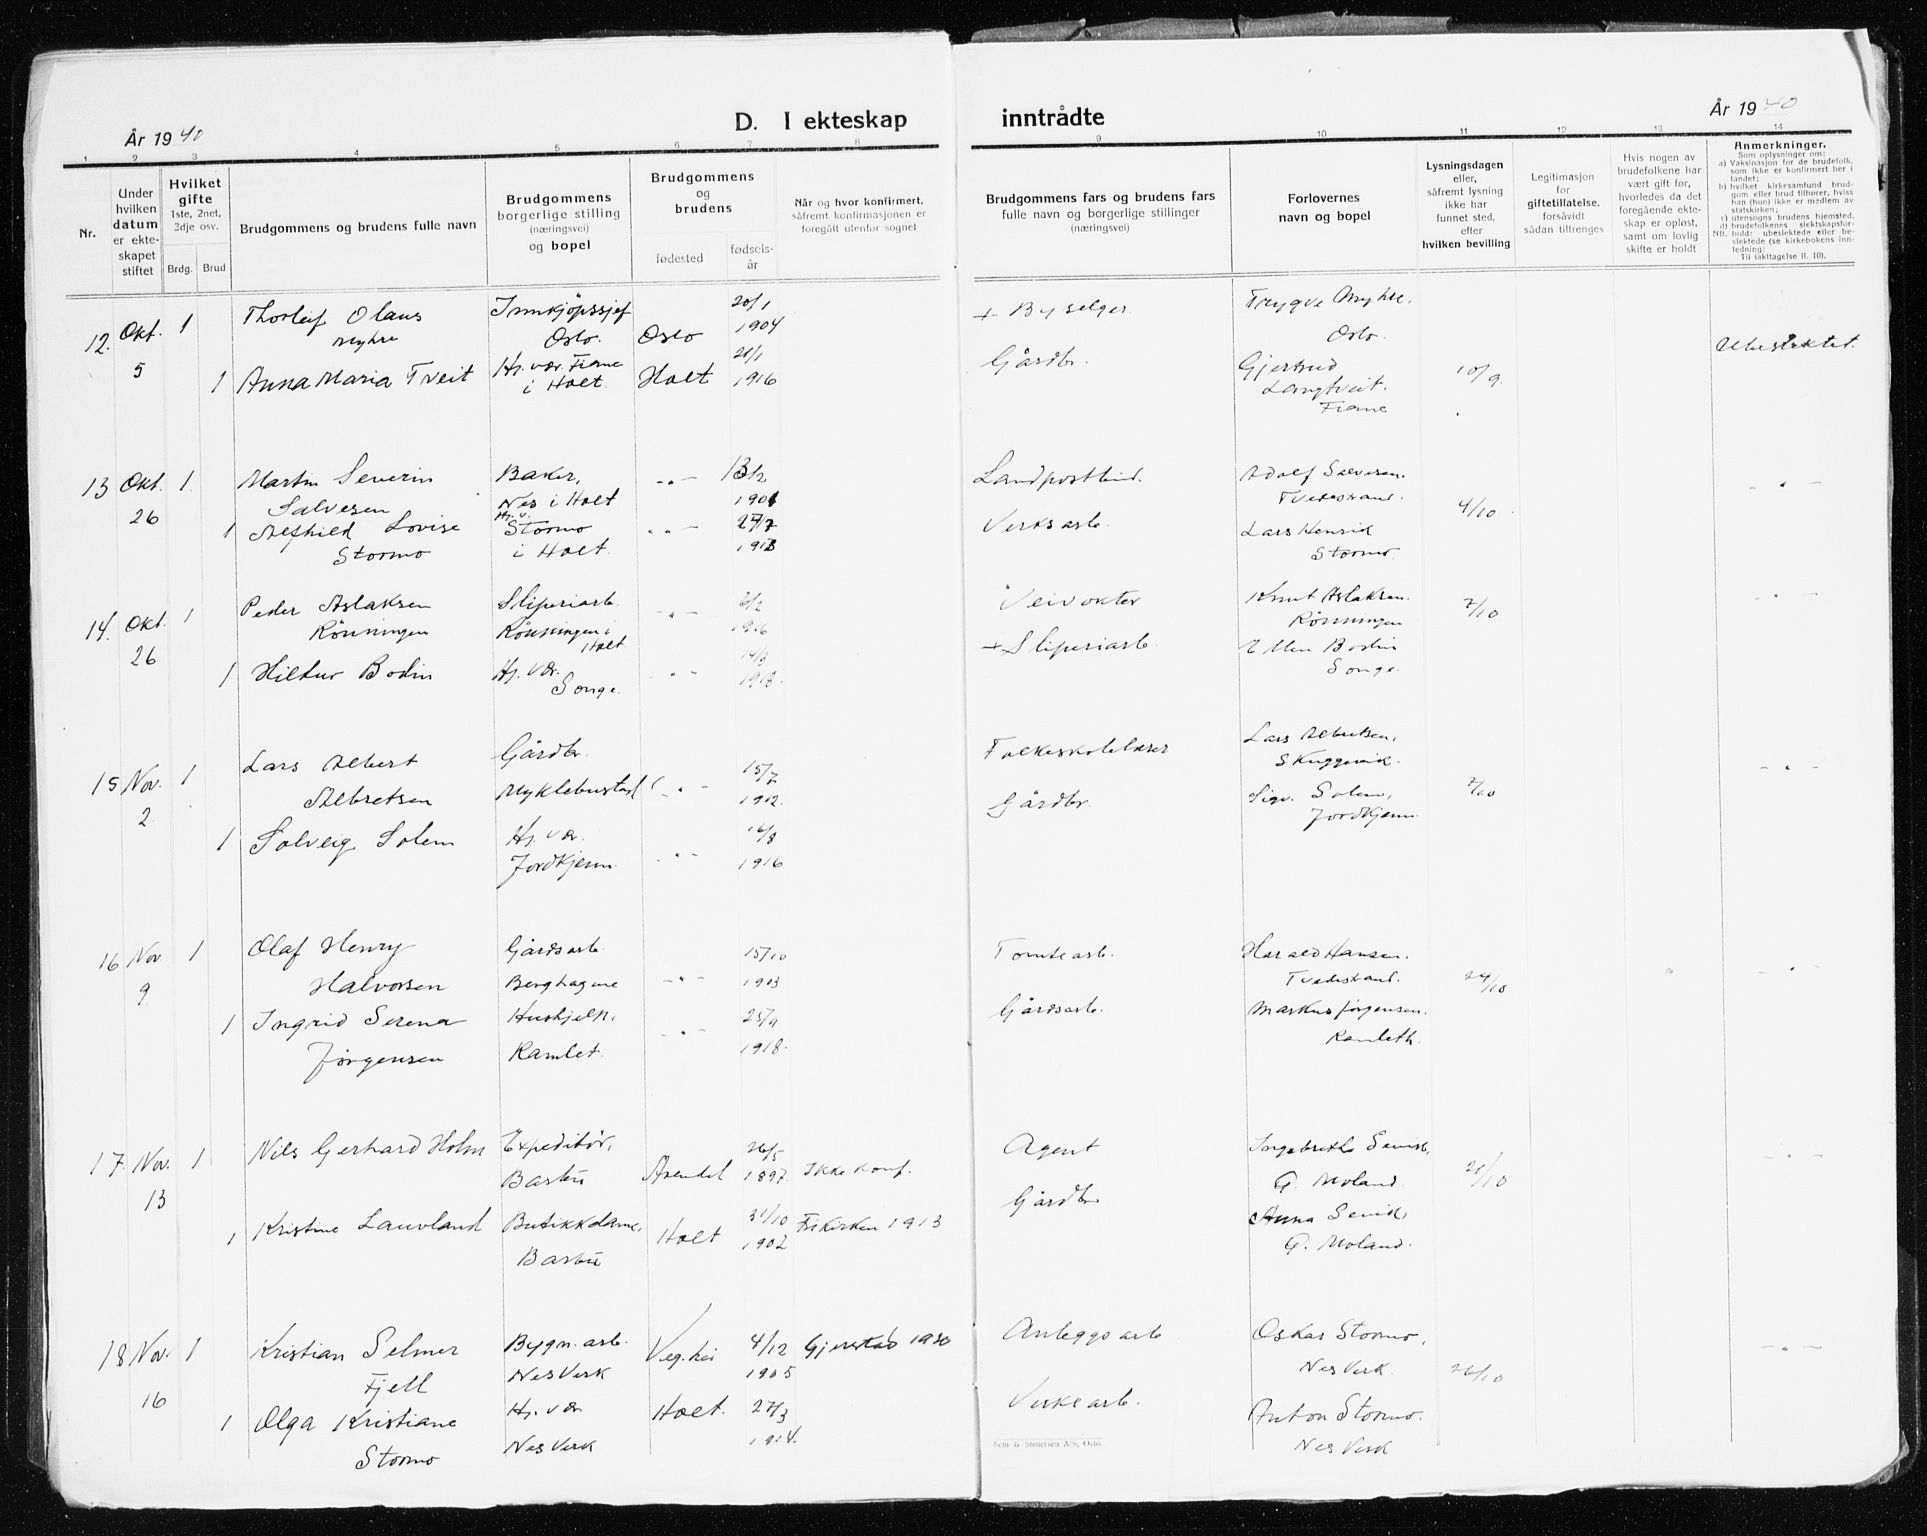 År 1940
D. I ekteskap inntrådte
År 1940
1 2 3 4 5 6 7 8 9 10 11 12 13 14
Nr.
Under
hvilken
datum
er ekte-
skapet
stiftet
Hvilket
gifte
1ste, 2net,
3dje osv.
Brdg. Brud
Brudgommens og brudens fulle navn
Brudgommens
borgerlige stilling
(næringsvei)
og bopel
Brudgommens
og
brudens
fødested
fødsels-
år
Når og hvor konfirmert,
såfremt konfirmasjonen er
foregått utenfor sognet
Brudgommens fars og brudens fars
fulle navn og borgerlige stillinger
(næringsvei)
Forlovernes
navn og bopel
Lysningsdagen
eller,
såfremt lysning
ikke har
funnet sted,
efter
hvilken bevilling
Legitimasjon
for
giftetillatelse,
forsåvidt
sådan tiltrenges
Hvis nogen av
brudefolkene har
vært gift før,
hvorledes da det
foregående ekte-
skap er opløst,
samt om lovlig
skifte er holdt
Anmerkninger.
Som oplysninger om:
a) Vaksinasjon for de brudefolk,
som ikke er konfirmert her i
landet;
b) hvilket kirkesamfund brud-
gom eller brud tilhører, hviss
han (hun) ikke er medlem av
statskirken;
c) utensogns brudens hjemsted.
d) brudefolkenes slektskapsfor-
NB. hold: ubeslektede eller be-
slektede (se kirkebokens inn-
ledning:
Til iakttagelse II. 10).
12. Okt. 5 1 Thorleif Olaus Myhre Innkjøpssjef Oslo. Oslo 20/1 1904 + Byselger Trygve Myhre. Oslo. Ubeslektet.
1 Anna Maria Tveit Hj. vær. Fiane i Holt. Holt 21/1 1916 Gårdbr. Gjertrud Langtveit. Fiane 10/9.
13 Okt. 26 1 Martin Severin Salvesen Baker, Nes i Holt -"- 1901 Landpostbud. Adolf Salvesen. Tvedestrand. 4/10 -"-
1 Alfhild Lovise Stormo Hj. v. Stormo i Holt. -"- Verksarb. Lars Henrik Stormo.
14. Okt. 26 1 Peder Aslaksen Rönningen Sliperiarb. Rönningen i Holt -"- 1916 Veivokter Knut Aslaksen. Rönningen 7/10 -"-
1 Hildur Bodin Hj. vær. Songe. -"- 1918. + Sliperiarb. Ellen Bodin Songe.
15 Nov. 2. 1 Lars Albert Albretsen Gårdbr. Myklebustad -"- 15/7 1912. Folkeskolelærer Lars Albretsen, Skuggevik. 7/10 -"-
1 Solveig Solem Hj. vær. Jordkjenn -"- 16/8 1916 Gårdbr. Sigv. Solem, Jordkjenn
16 Nov 9. 1 Olaf Henry Halvorsen Gårdsarb. Berghagene -"- 15/10 1903 Tomtearb. Harald Hansen. Tvedestrand. 24/10 -"-
1 Ingrid Serena Jørgensen Hushjelp. Ramlet. -"- 1918. Gårdsarb. Markus Jörgensen. Ramleth.
17. Nov. 13 1 Nils Gerhard Holm Expeditör, Barbu Arendal 26/5 1897. Ikke konf. Agent G. Moland. 21/10 -"-
1 Kristine Lauvland Butikkdame, Barbu Holt 31/10 1902 Frikirken 1913 Gårdbr Anna G. Moland.
18 Nov. 16 1 Kristian Selmer Fjell Bygn. arb. Nes Verk Veg.hei 4/12 1905 Gjerstad 1920 Anleggsarb Oskar Stormo, Nes Verk. 26/10 -"-
1 Olga Kristiane Stormo Hj. vær Nes Verk Holt. 27/3 1914. Verksarb. Anton Stormo. Nes Verk
Sem & Stenersen A/S, Oslo.